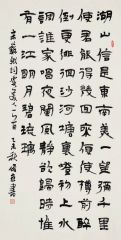 湖山信是東南美一望彌千里
使君能得幾回來便使尊前醉
倒更徘徊沙河塘裏燈初上水
調誰家唱夜闌風靜欲歸時惟
有一江明月碧琉璃